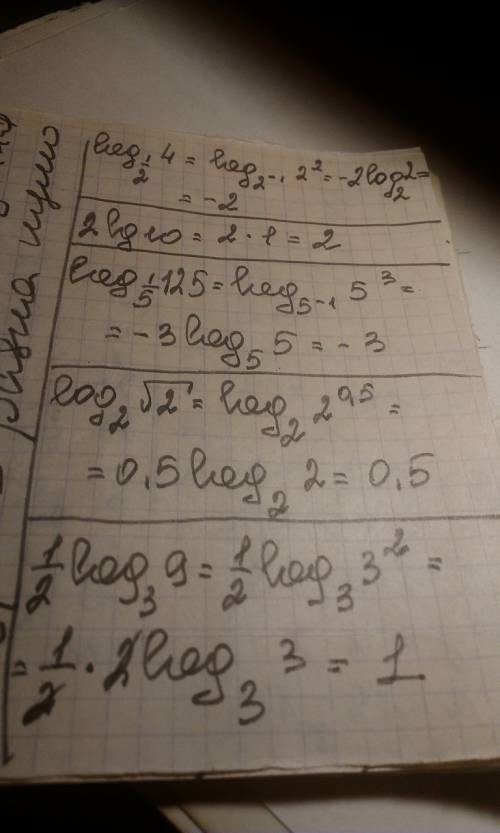 log_{1/2} 4 = log_{2^{-1}} 2^2 = -2log_2 2 =
= -2
2lg10 = 2 · 1 = 2
log_{1/5} 125 = log_{5^{-1}} 5^3 =
= -3log_5 5 = -3
log_2 √2 = log_2 2^{0,5} =
= 0,5log_2 2 = 0,5
1/2 log_3 9 = 1/2 log_3 3^2 =
= 1/2 · 2log_3 3 = 1